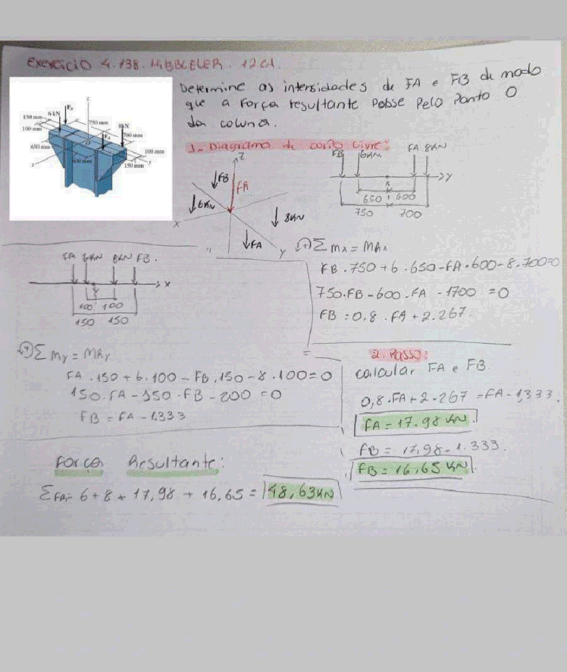 Exercício 4.138. HIBBELER. 12 ed.
Determine as intensidades de FA e FB de modo
que a Força resultante passe pelo ponto O
da coluna.
1- Diagrama de corpo livre:
z
750 mm
6 kN
8 kN
150 mm
100 mm
700 mm
650 mm
600 mm
100 mm
150 mm
Z
FB
FA
6KN
8KN
X
FA
Y
FB 6KN FA 8KN
Y
650 600
750 700
FA 6KN 8KN FB
X
Y
100 100
150 150
∑ MX = MRX
FB.750+6.650-FA.600-8.700=0
750.FB-600.FA-1700=0
FB=0,8.FA+2.267
∑ MY = MRY
FA.150+6.100-FB.150-8.100=0
150.FA-150.FB-200=0
FB=FA-1,333
2. Passo:
calcular FA e FB
0,8.FA+2.267=FA-1,333.
FA=17.98 KN
FB=17,98-1.333.
FB=16,65 KN
Força Resultante:
6+8+17,98+16,65=48,63KN